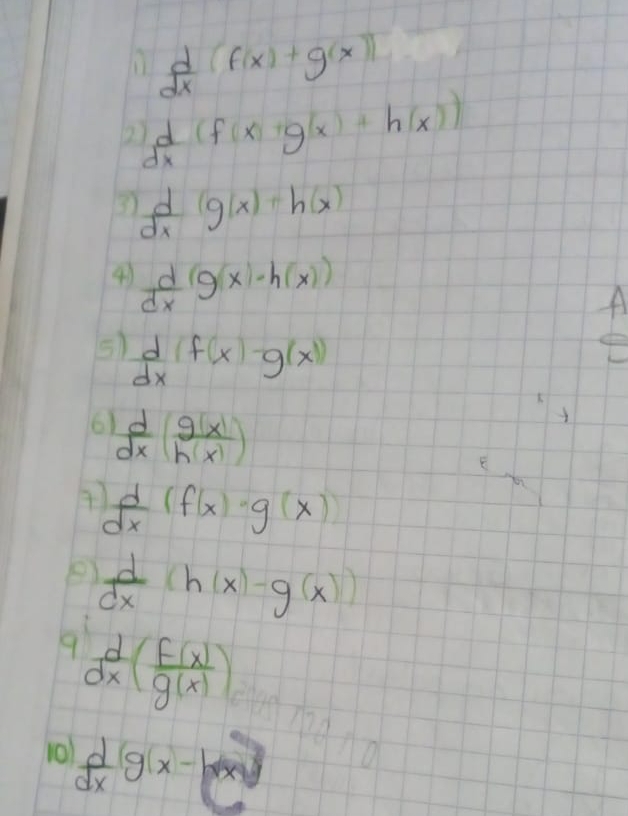 1) d/dx (f(x) + g(x))
2) d/dx (f(x) + g(x) + h(x))
3) d/dx (g(x) + h(x)
4) d/dx (g(x) · h(x))
5) d/dx (f(x) - g(x))
6) d/dx (g(x)/h(x))
7) d/dx (f(x) · g(x))
8) d/dx (h(x) - g(x))
9) d/dx (f(x)/g(x))
10) d/dx (g(x) - h(x)